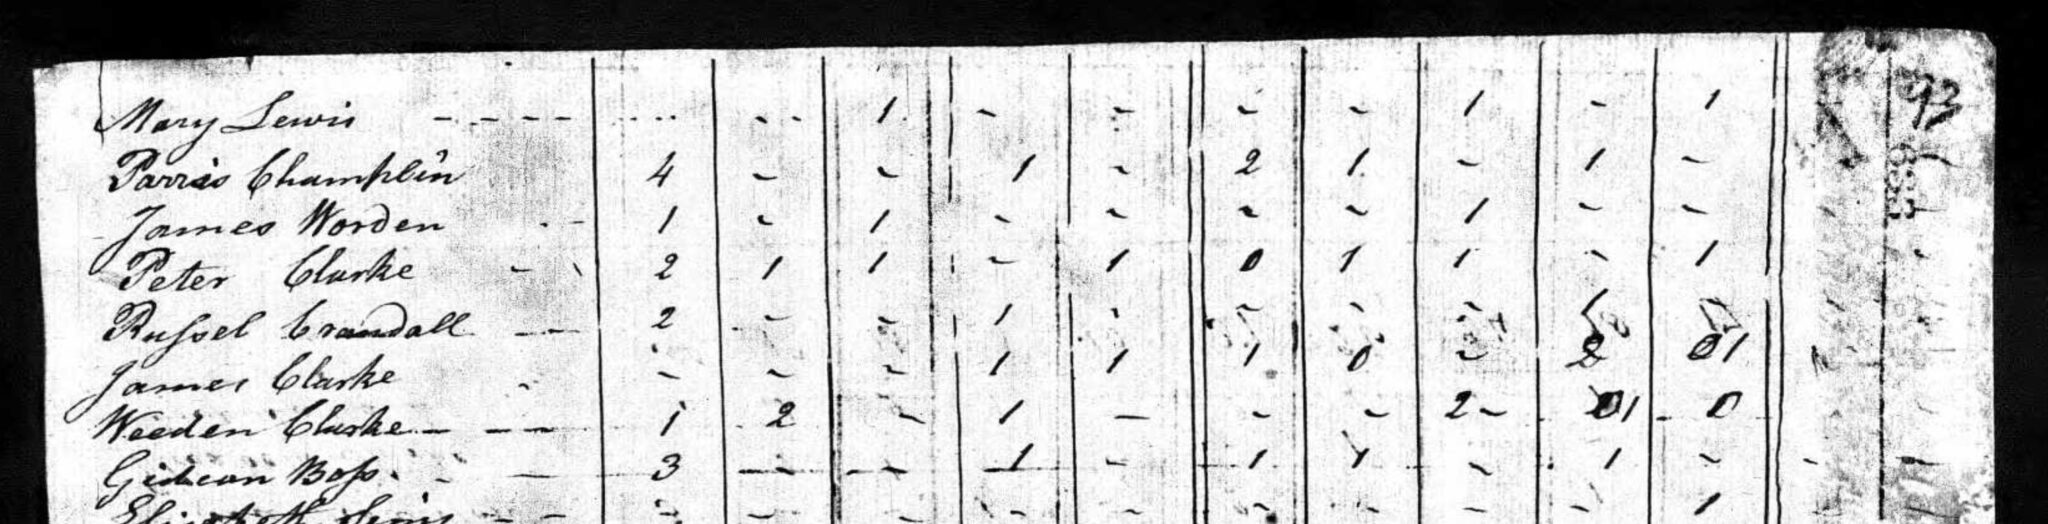 Mary Lewis - - - - - - 1 - - - - 1 - 1 93
Parris Champlin 4 - - 1 - 2 1 - 1 -
James Worden 1 - 1 - - - - 1 - -
Peter Clarke - 2 1 1 - 1 0 1 1 - 1
Russel Crandall - 2 - - 1 - - - - 1
James Clarke - - - 1 1 1 0 - 2 01
Weeden Clarke - - - 1 2 - 1 - - - 2 - 01 0
Gideon Boss - 3 - - 1 - 1 1 - 1 -
Elizabeth - - - - - - - - - - 1